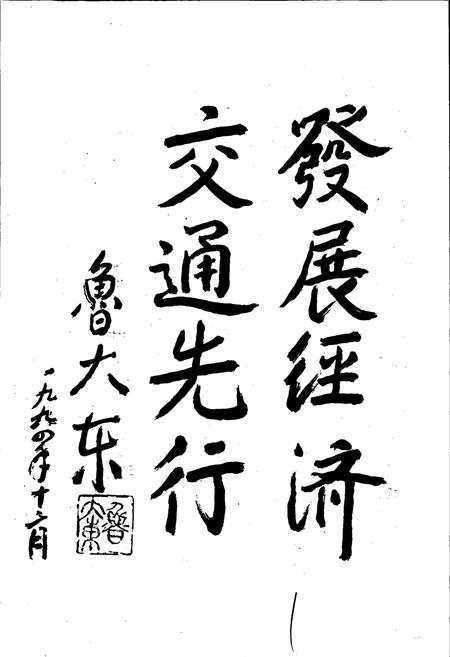 發展經济
交通先行
魯大东
一九九四年十二月
魯大東